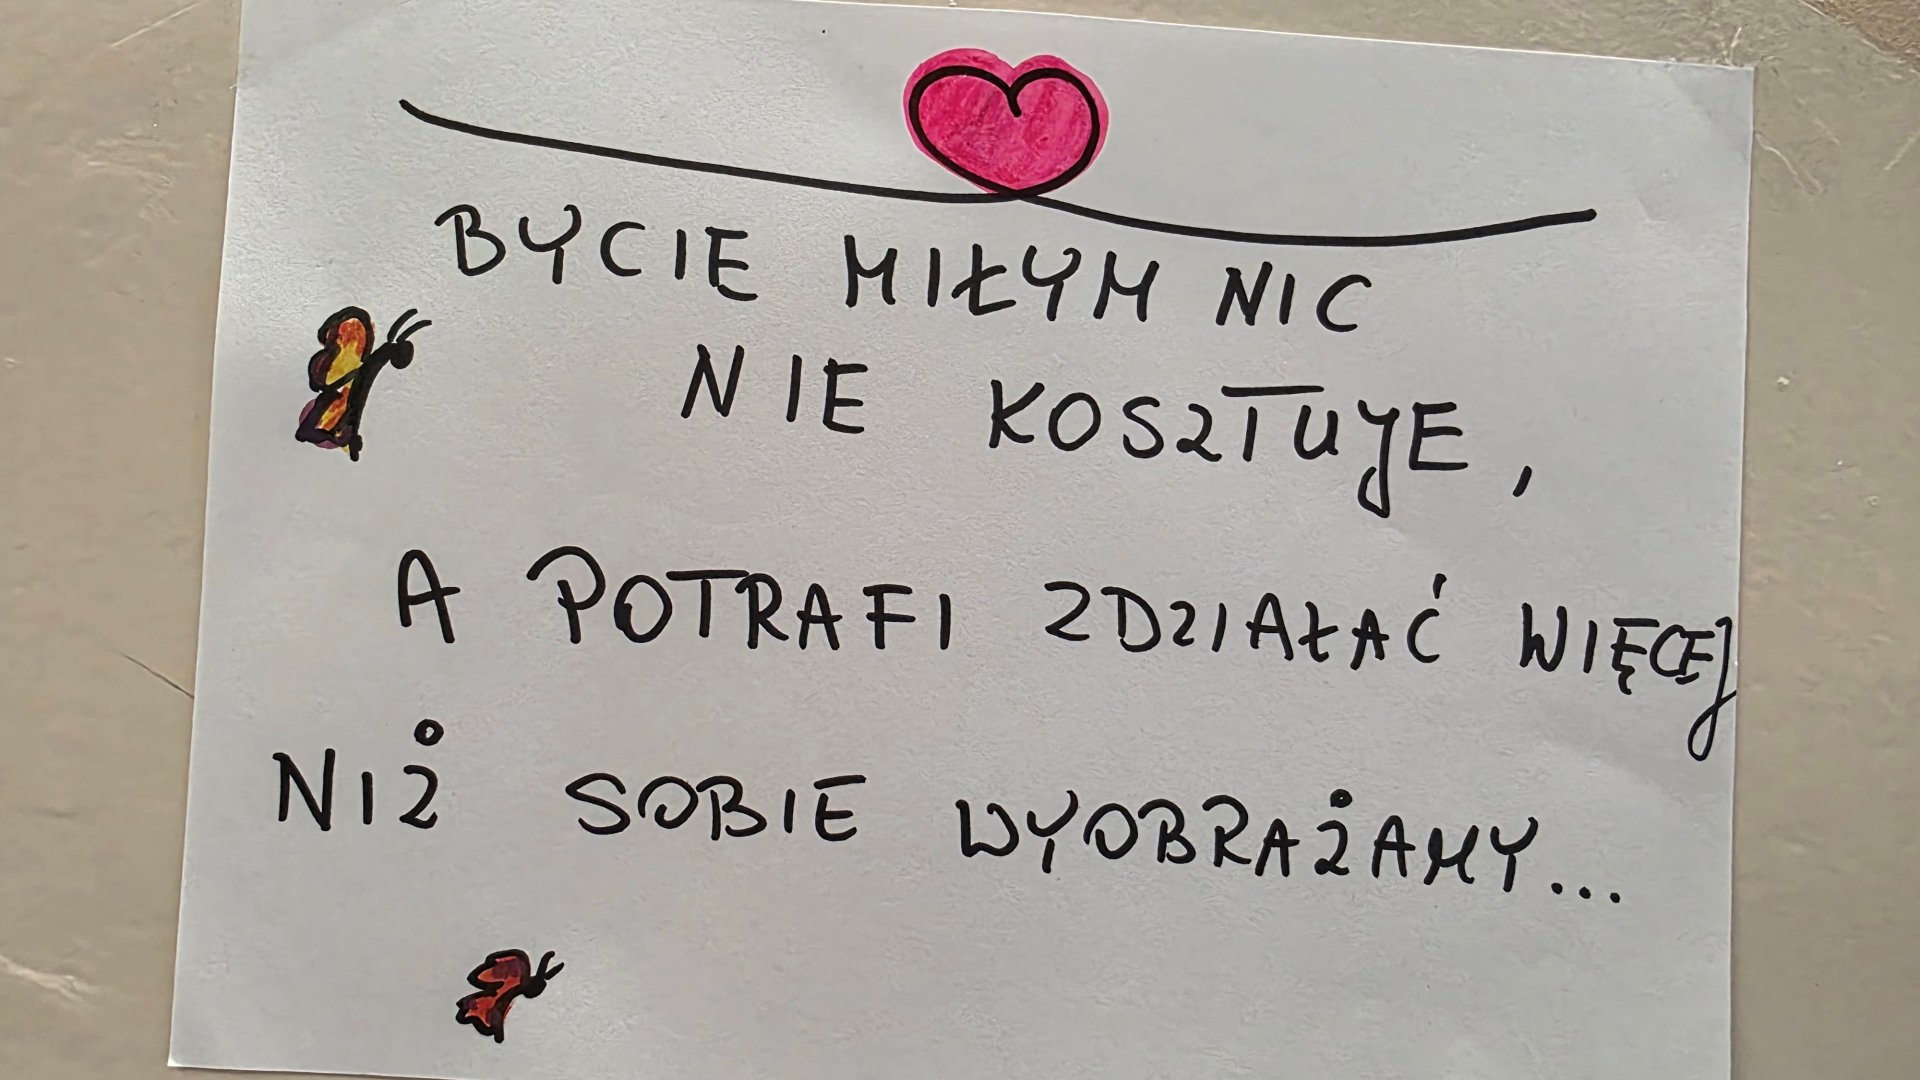 BYCIE MIŁYM NIC
NIE KOSZTUJE,
A POTRAFI ZDZIAŁAĆ WIĘCEJ
NIŻ SOBIE WYOBRAŻAMY...